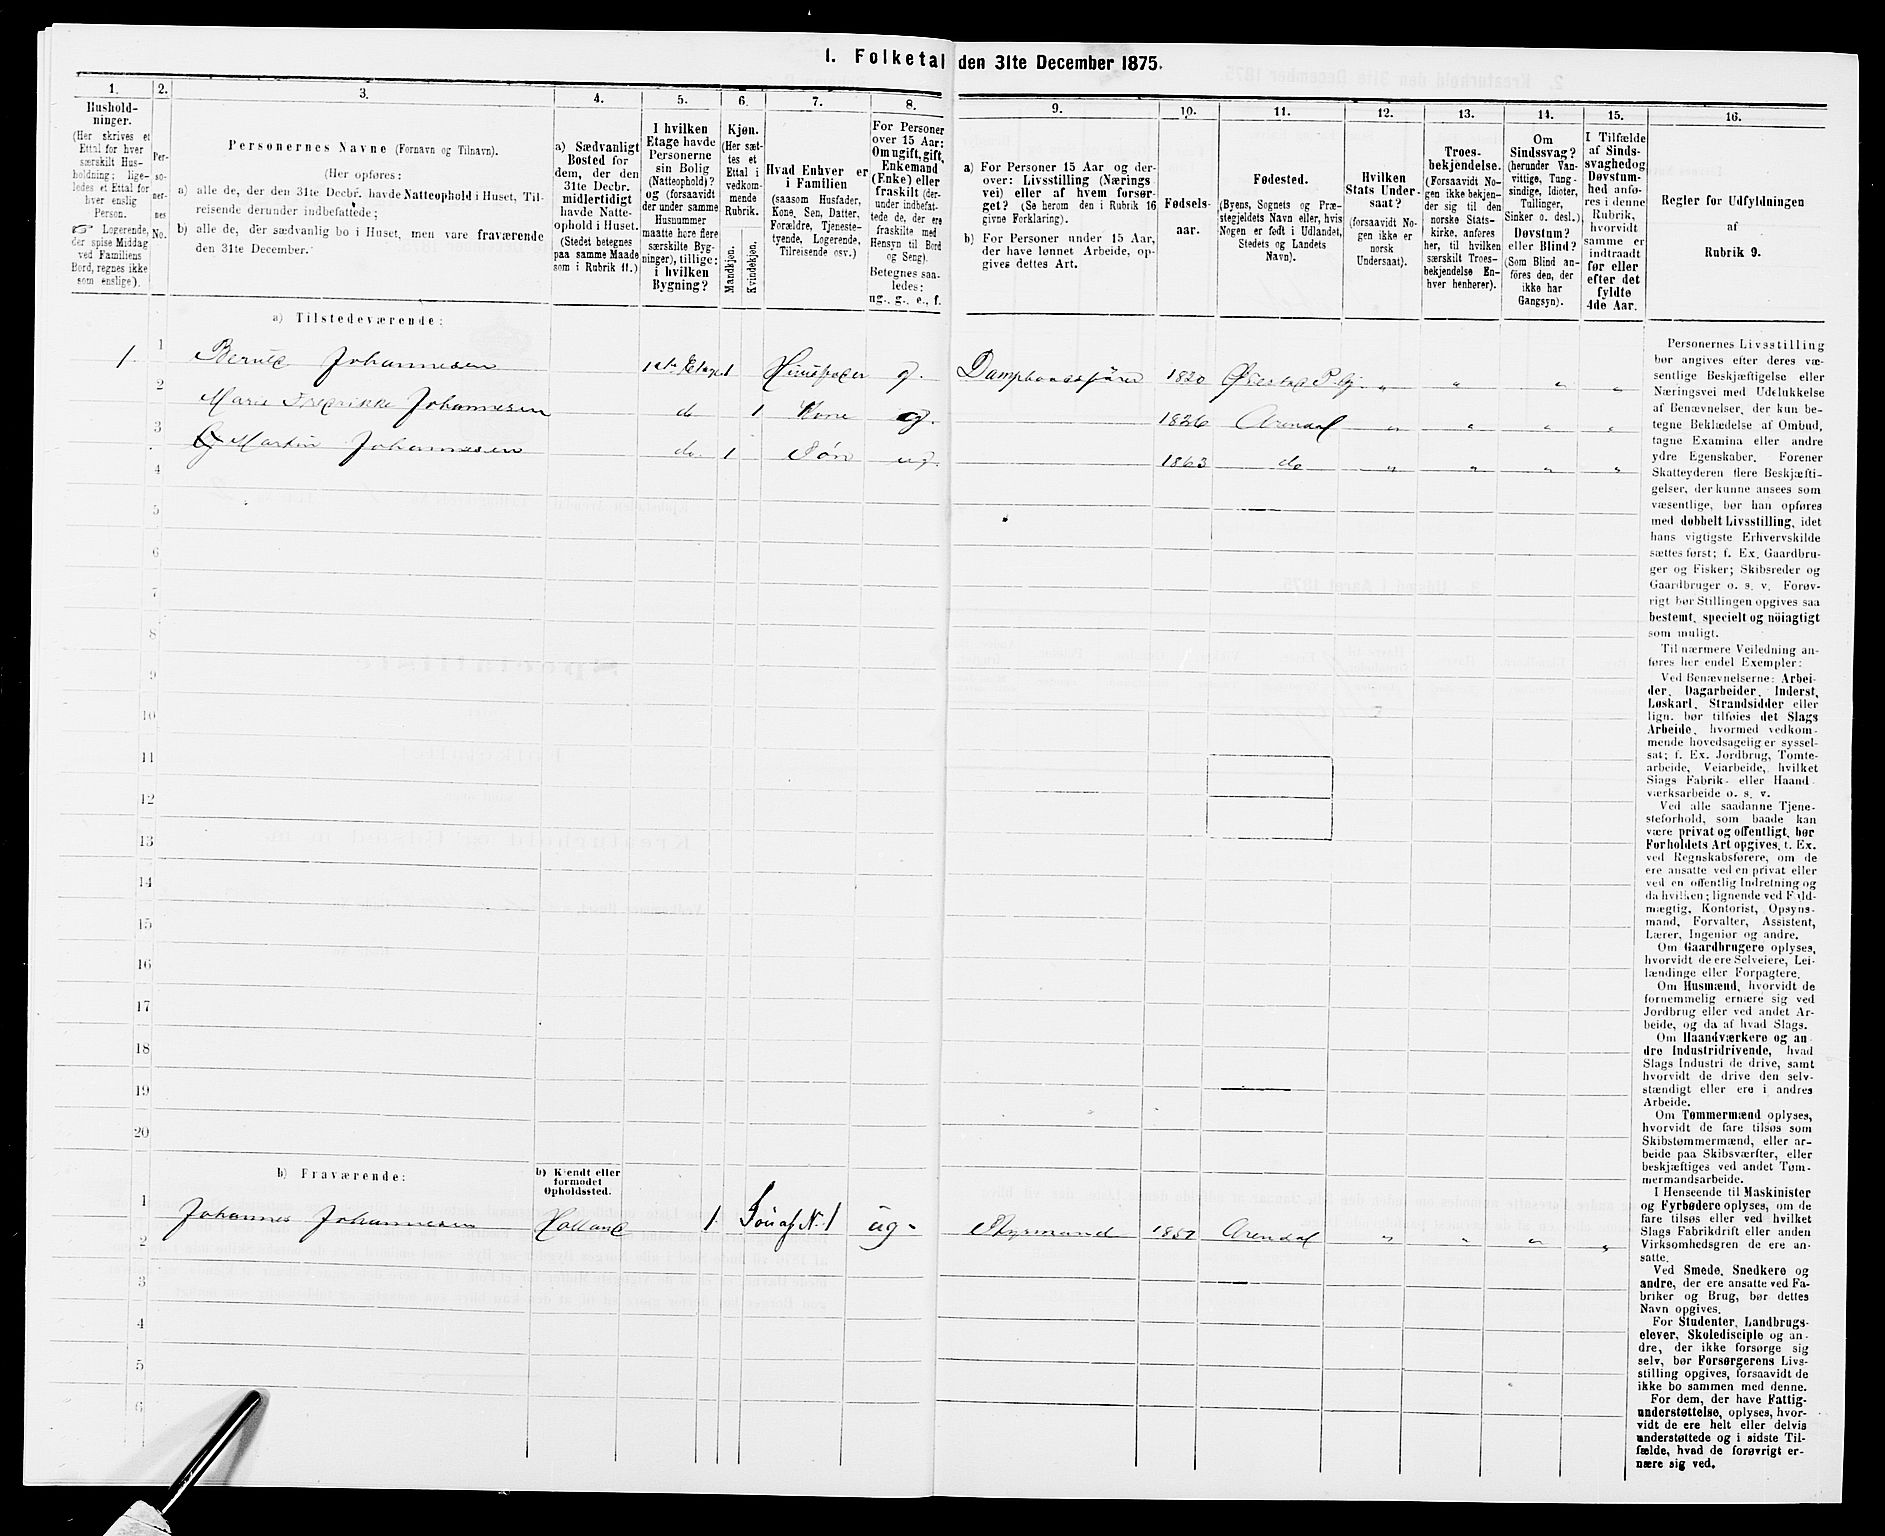 1. Folketal den 31te December 1875.
1. 2. 3. 4. 5. 6. 7. 8. 9. 10. 11. 12. 13. 14. 15. 16.
Hushold-
ninger.
(Her skrives et
Ettal for hver
særskilt Hus-
holdning; lige-
ledes et Ettal for
hver enslig
Person.
☞ Logerende,
der spise Middag
ved Familiens
Bord, regnes ikke
som enslige).
Per-
so-
ner-
nes
No.
Personernes Navne (Fornavn og Tilnavn).
(Her opføres:
a) alle de, der den 31te Decbr. havde Natteophold i Huset, Til-
reisende derunder indbefattede;
b) alle de, der sædvanlig bo i Huset, men vare fraværende
den 31te December.
a) Sædvanligt
Bosted for
dem, der den
31te Decbr.
midlertidigt
havde Natte-
ophold i Huset.
(Stedet betegnes
paa samme Maade
som i Rubrik 11.)
I hvilken
Etage havde
Personerne
sin Bolig
(Natteophold)?
og (forsaavidt
der under samme
Husnummer
maatte høre flere
særskilte Byg-
ninger), tillige:
i hvilken
Bygning?
Kjøn.
(Her sæt-
tes et
Ettal i
vedkom-
mende
Rubrik.
Mandkjøn.
Kvindekjøn.
Hvad Enhver er
i Familien
(saasom Husfader,
Kone, Søn, Datter,
Forældre, Tjeneste-
tyende, Logerende,
Tilreisende osv.)
For Personer
over 15 Aar:
Om ugift, gift,
Enkemand
(Enke) eller
fraskilt (der-
under indbefat-
tede de, der ere
fraskilte med
Hensyn til Bord
og Seng).
Betegnes saa-
ledes:
ug., g., e., f.
a) For Personer 15 Aar og der-
over: Livsstilling (Nærings
vei) eller af hvem forsør-
get? (Se herom den i Rubrik 16
givne Forklaring).
b) For Personer under 15 Aar,
der have lønnet Arbeide, op-
gives dettes Art.
Fødsels-
aar.
Fødested.
(Byens, Sognets og Præ-
stegjeldets Navn eller, hvis
Nogen er født i Udlandet,
Stedets og Landets
Navn).
Hvilken
Stats Under-
saat?
(forsaavidt No-
gen ikke er
norsk
Undersaat).
Troes-
bekjendelse.
(Forsaavidt No-
gen ikke bekjen-
der sig til den
norske Stats-
kirke, anføres
her, til hvilken
særskilt Troes-
bekjendelse En-
hver henhører).
Om
Sindssvag?
(herunder Van-
vittige, Tung-
sindige, Idioter,
Tullinger,
Sinker o. desl.)
Døvstum?
eller Blind?
(Som Blind an-
föres den, der
ikke har
Gangsyn).
I Tilfælde
af Sinds-
svaghed og
Døvstum-
hed anfø-
res i denne
Rubrik,
hvorvidt
samme er
indtraadt
før eller
efter det
fyldte
4de Aar.
Regler for Udfyldningen
af
Rubrik 9.
a) Tilstedeværende:
1. 1 Bernt Johannesen 1ste Etage 1 Huusfader g. Dampbaadsfører 1820 Øiestad P.gj. „ „ „ „
2 Marie Fredrikke Johannesen do 1 Kone g. 1826 Arendal „ „ „ „
3 Martin Johannesen do. 1 Søn ug. 1863 do „ „ „ „
4
5
6
7
8
9
10
11
12
13
14
15
16
17
18
19
20
b) Fraværende:
b) Kjendt eller
formodet
Opholdssted.
1 Johannes Johannesen Holland 1. Søn af N. 1 ug. Styrmand 1857 Arendal „ „ „ „
2
3
4
5
6
Personernes Livsstilling
bør angives efter deres væ-
sentlige Beskjæftigelse eller
Næringsvei med Udelukkelse
af Benævnelser, der kun be-
tegne Beklædelse af Ombud,
tagne Examina eller andre
ydre Egenskaber. Forener
Skatteyderen flere Beskjæfti-
gelser, der kunne ansees som
væsentlige, bør han opføres
med dobbelt Livsstilling, idet
hans vigtigste Erhvervskilde
sættes først; f. Ex. Gaardbru-
ger og Fisker; Skibsreder og
Gaardbruger o. s. v. Forøv-
rigt bør Stillingen opgives saa
bestemt, specielt og nöiagtigt
som muligt.
Til nærmere Veiledning an-
føres her endel Exempler:
Ved Benævnelserne: Arbei-
der, Dagarbeider, Inderst,
Løskarl, Strandsidder eller
lign. bør tilføies det Slags
Arbeide, hvormed vedkom-
mende hovedsagelig er syssel-
sat; f. Ex. Jordbrug, Tomte-
arbeide, Veiarbeide, hvilket
Slags Fabrik- eller Haand-
værksarbeide o. s. v.
Ved alle saadanne Tjene-
steforhold, som baade kan
være privat og offentligt, bør
Forholdets Art opgives, f. Ex.
ved Regnskabsførere, om de
ere ansatte ved en privat eller
ved en offentlig Indretning og
da hvilken; lignende ved Fuld-
mægtig, Kontorist, Opsyns-
mand, Forvalter, Assistent,
Lærer, Ingeniør og andre.
Om Gaardbrugere oplyses,
hvorvidt de ere Selveiere, Lei-
lændinge eller Forpagtere.
Om Husmænd, hvorvidt de
fornemmelig ernære sig ved
Jordbrug eller ved andet Ar-
beide, og da af hvad Slags.
Om Haandværkere og an-
dre Industridrivende, hvad
Slags Industri de drive, samt
hvorvidt de drive den selv-
stændigt eller ere i andres
Arbeide.
Om Tømmermænd oplyses,
hvorvidt de fare tilsøs som
Skibstømmermænd, eller ar-
beide paa Skibsværfter, eller
beskjæftiges ved andet Tøm-
mermandsarbeide.
I Henseende til Maskinister
og Fyrbødere oplyses, om de
fare tilsøs eller ved hvilket
Slags Fabrikdrift eller anden
Virksomhedsgren de ere an-
satte.
Ved Smede, Snedkere og
andre, der ere ansatte ved Fa-
briker og Brug, bør dettes
Navn opgives.
For Studenter, Landbrugs-
elever, Skoledisciple og an-
dre, der ikke forsørge sig
selv, bør Forsørgerens Livs-
stilling opgives, forsaavidt de
ikke bo sammen med denne.
For dem, der have Fattig-
understøttelse, oplyses, hvor-
vidt de ere helt eller delvis
understøttede og i sidste Til-
fælde, hvad de forøvrigt er-
nære sig ved.